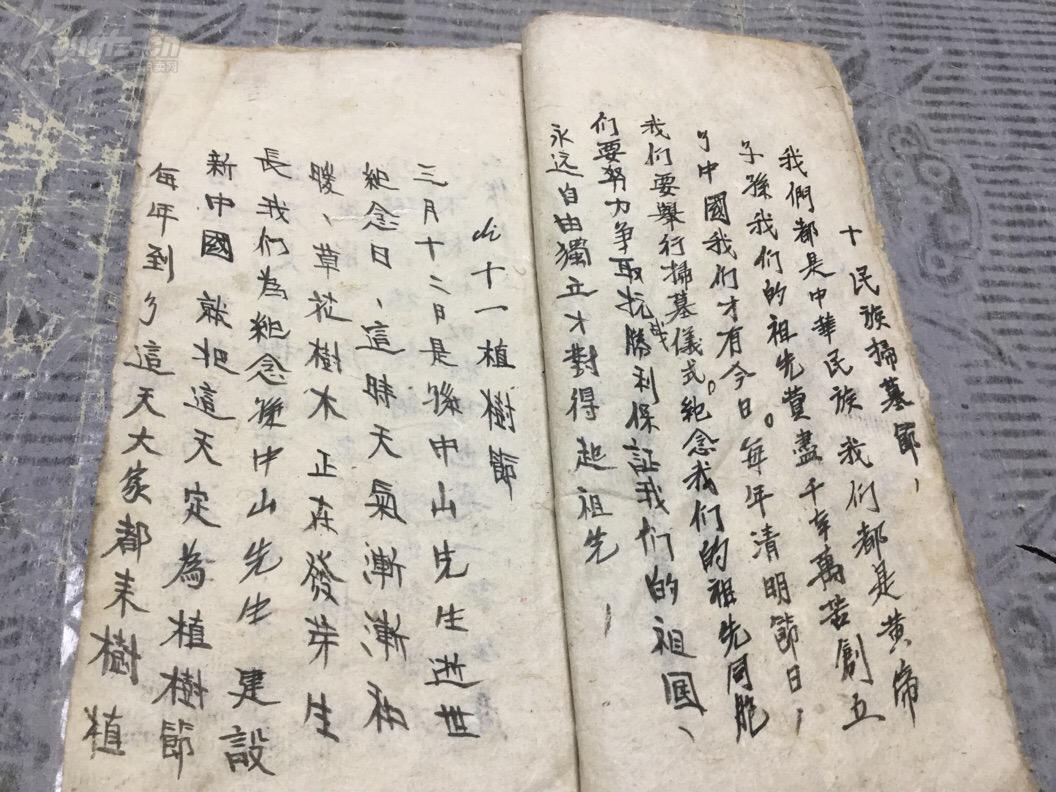 十 民族掃墓節，
我們都是中華民族我们都是黄帝
子孫我们的祖先費盡千辛萬苦創立
了中國我们才有今日。每年清明節日，
我们要舉行掃墓儀式。紀念我们的祖先同胞
们要努力争取抗战勝利保証我们的祖国、
永远自由獨立才對得起祖先
十一 植樹節
三月十二日是孫中山先生逝世
紀念日、這時天氣漸漸和
暖、草花樹木正在發芽生
長我们為紀念孫中山先生建設
新中國就把這天定為植樹節
每年到了這天大家都来樹植